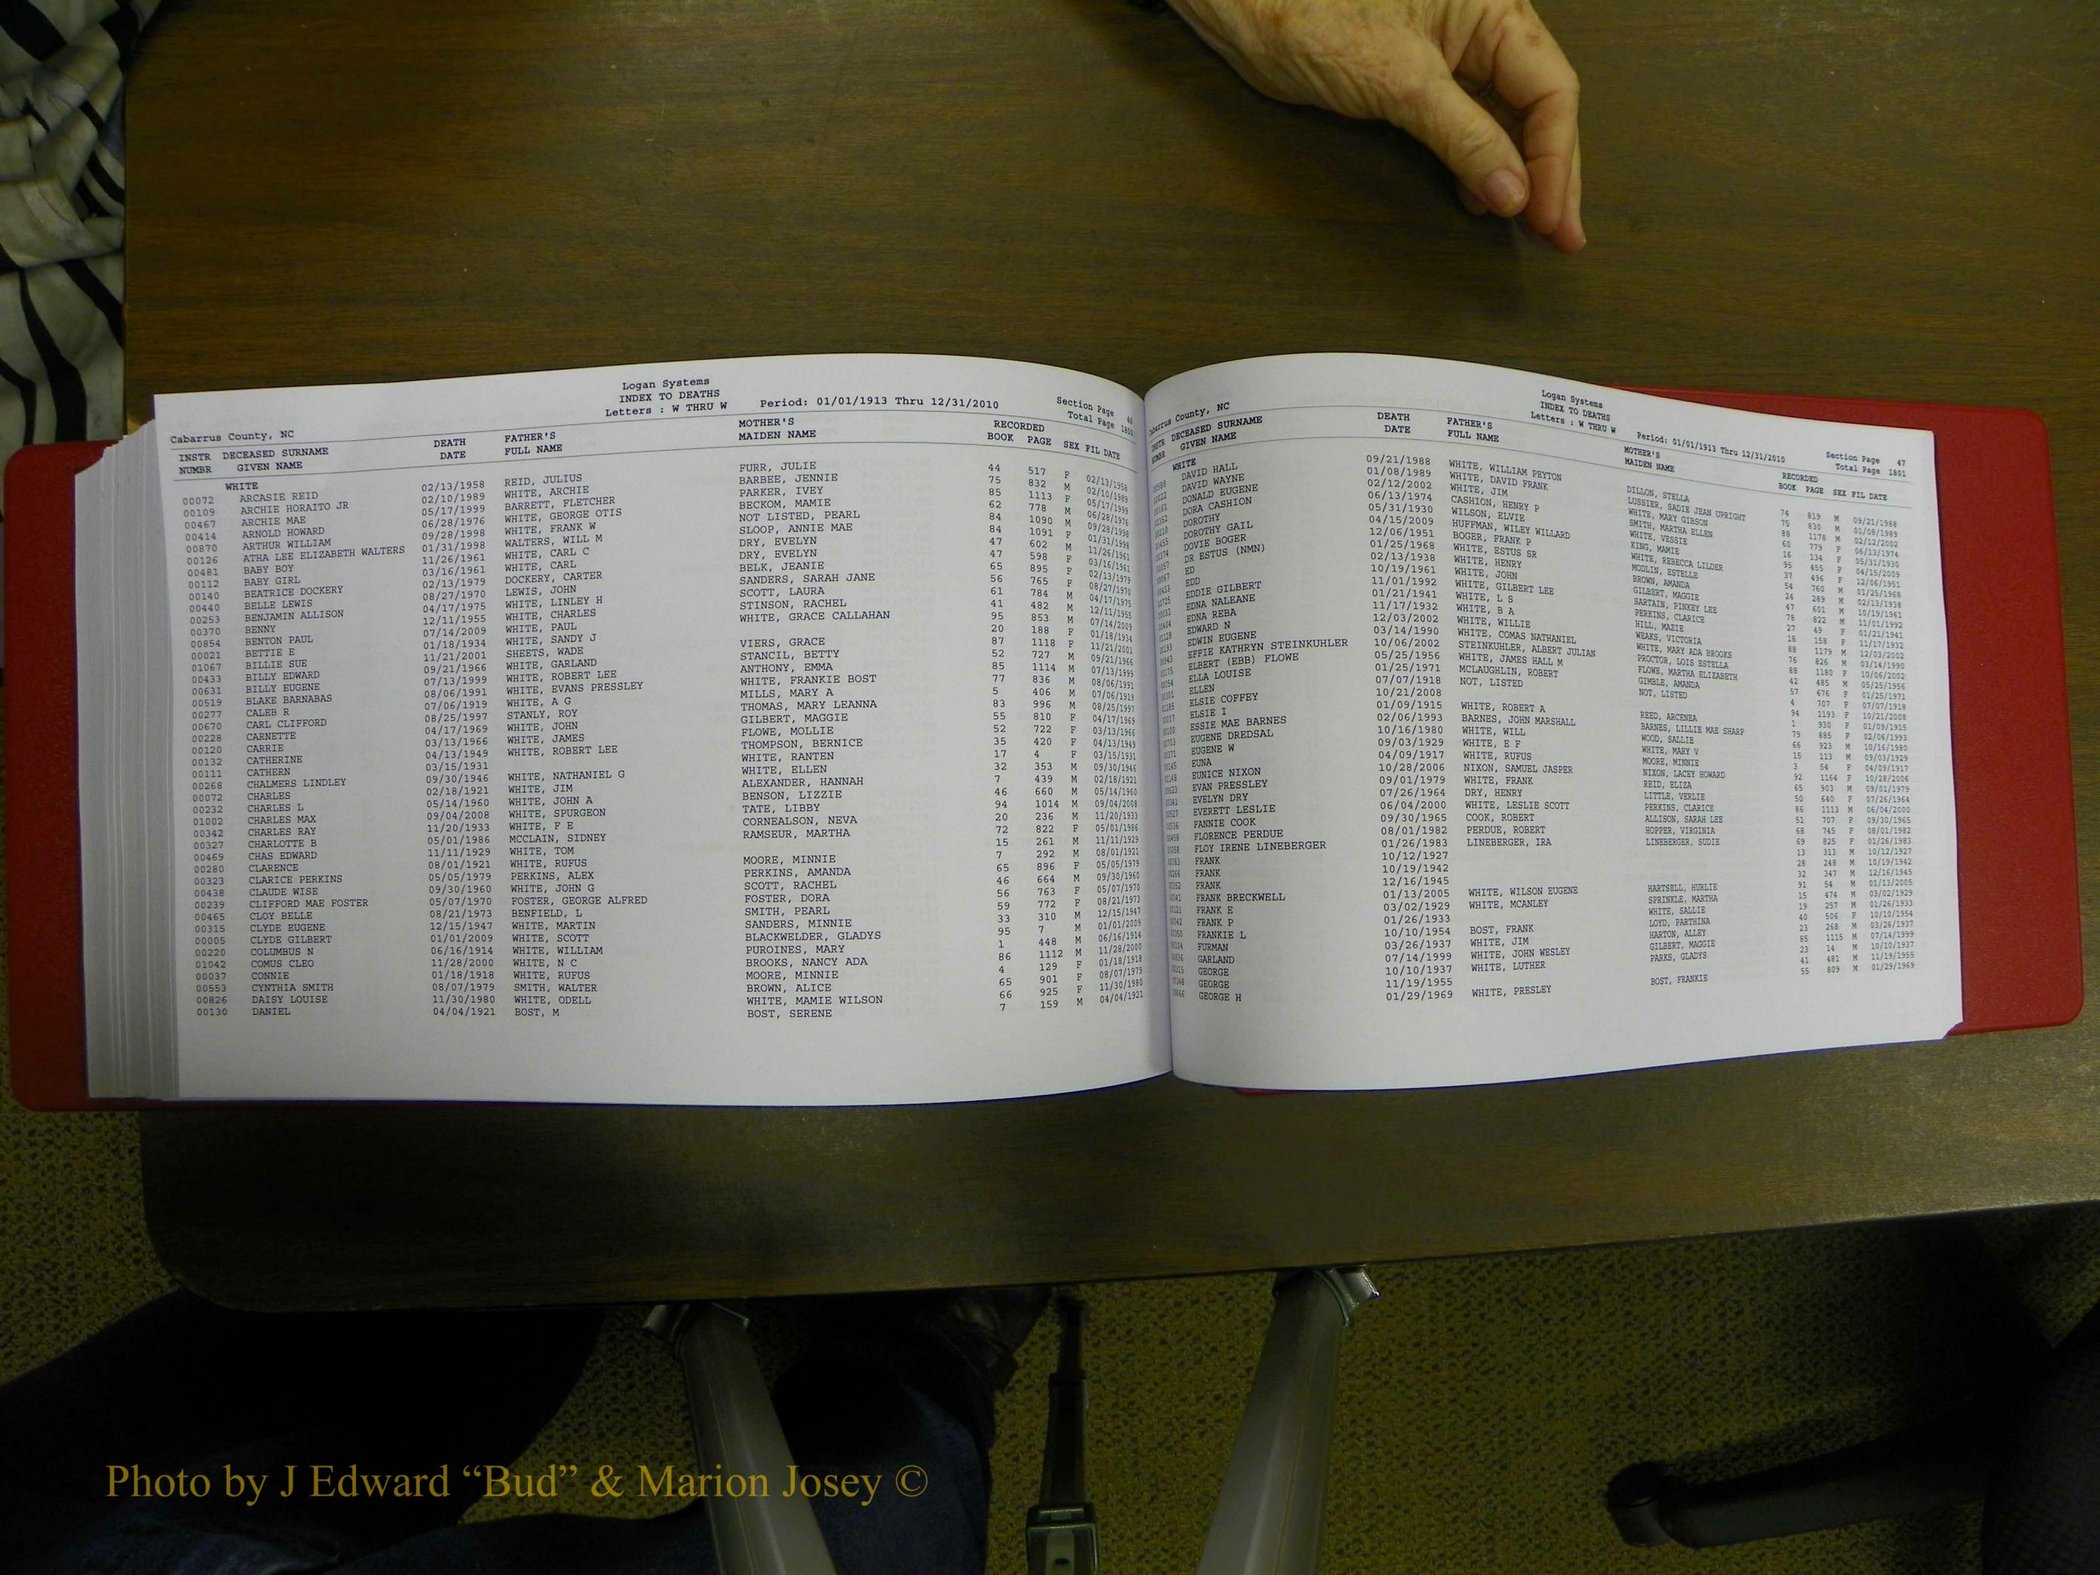 Logan Systems
INDEX TO DEATHS
Cabarrus County, NC Letters : W THRU W Period: 01/01/1913 Thru 12/31/2010 Section Page 46
Total Page 1800
INSTR DECEASED SURNAME DEATH FATHER'S MOTHER'S RECORDED
NUMBR GIVEN NAME DATE FULL NAME MAIDEN NAME BOOK PAGE SEX FIL DATE
WHITE
00072 ARCASIE REID 02/13/1958 REID, JULIUS FURR, JULIE 44 517 F 02/13/1958
00109 ARCHIE HORAITO JR 02/10/1989 WHITE, ARCHIE BARBEE, JENNIE 75 832 M 02/10/1989
00467 ARCHIE MAE 05/17/1999 BARRETT, FLETCHER PARKER, IVEY 85 1113 F 05/17/1999
00414 ARNOLD HOWARD 06/28/1976 WHITE, GEORGE OTIS BECKOM, MAMIE 62 778 M 06/28/1976
00870 ARTHUR WILLIAM 09/28/1998 WHITE, FRANK W NOT LISTED, PEARL 84 1090 M 09/28/1998
00126 ATHA LEE ELIZABETH WALTERS 01/31/1998 WALTERS, WILL M SLOOP, ANNIE MAE 84 1091 F 01/31/1998
00481 BABY BOY 11/26/1961 WHITE, CARL C DRY, EVELYN 47 602 M 11/26/1961
00112 BABY GIRL 03/16/1961 WHITE, CARL DRY, EVELYN 47 598 F 03/16/1961
00140 BEATRICE DOCKERY 02/13/1979 DOCKERY, CARTER BELK, JEANIE 65 895 F 02/13/1979
00440 BELLE LEWIS 08/27/1970 LEWIS, JOHN SANDERS, SARAH JANE 56 765 F 08/27/1970
00253 BENJAMIN ALLISON 04/17/1975 WHITE, LINLEY H SCOTT, LAURA 61 784 M 04/17/1975
00370 BENNY 12/11/1955 WHITE, CHARLES STINSON, RACHEL 41 482 M 12/11/1955
00854 BENTON PAUL 07/14/2009 WHITE, PAUL WHITE, GRACE CALLAHAN 95 853 M 07/14/2009
00021 BETTIE E 01/18/1934 WHITE, SANDY J 20 188 F 01/18/1934
01067 BILLIE SUE 11/21/2001 SHEETS, WADE VIERS, GRACE 87 1118 F 11/21/2001
00433 BILLY EDWARD 09/21/1966 WHITE, GARLAND STANCIL, BETTY 52 727 M 09/21/1966
00631 BILLY EUGENE 07/13/1999 WHITE, ROBERT LEE ANTHONY, EMMA 85 1114 M 07/13/1999
00519 BLAKE BARNABAS 08/06/1991 WHITE, EVANS PRESSLEY WHITE, FRANKIE BOST 77 836 M 08/06/1991
00277 CALEB R 07/06/1919 WHITE, A G MILLS, MARY A 5 406 M 07/06/1919
00670 CARL CLIFFORD 08/25/1997 STANLY, ROY THOMAS, MARY LEANNA 83 996 M 08/25/1997
00228 CARNETTE 04/17/1969 WHITE, JOHN GILBERT, MAGGIE 55 810 F 04/17/1969
00120 CARRIE 03/13/1966 WHITE, JAMES FLOWE, MOLLIE 52 722 F 03/13/1966
00132 CATHERINE 04/13/1949 WHITE, ROBERT LEE THOMPSON, BERNICE 35 420 F 04/13/1949
00111 CATHERN 03/15/1931 WHITE, RANTEN 17 4 F 03/15/1931
00268 CHALMERS LINDLEY 09/30/1946 WHITE, NATHANIEL G WHITE, ELLEN 32 353 M 09/30/1946
00072 CHARLES 02/18/1921 WHITE, JIM ALEXANDER, HANNAH 7 439 M 02/18/1921
00232 CHARLES L 05/14/1960 WHITE, JOHN A BENSON, LIZZIE 46 660 M 05/14/1960
01002 CHARLES MAX 09/04/2008 WHITE, SPURGEON TATE, LIBBY 94 1014 M 09/04/2008
00342 CHARLES RAY 11/20/1933 WHITE, F E CORNEALSON, NEVA 20 236 M 11/20/1933
00327 CHARLOTTE B 05/01/1986 MCCLAIN, SIDNEY RAMSEUR, MARTHA 72 822 F 05/01/1986
00469 CHAS EDWARD 11/11/1929 WHITE, TOM 15 261 M 11/11/1929
00280 CLARENCE 08/01/1921 WHITE, RUFUS MOORE, MINNIE 7 292 M 08/01/1921
00323 CLARICE PERKINS 05/05/1979 PERKINS, ALEX PERKINS, AMANDA 65 896 F 05/05/1979
00438 CLAUDE WISE 09/30/1960 WHITE, JOHN G SCOTT, RACHEL 46 664 M 09/30/1960
00239 CLIFFORD MAE FOSTER 05/07/1970 FOSTER, GEORGE ALFRED FOSTER, DORA 56 763 F 05/07/1970
00465 CLOY BELLE 08/21/1973 BENFIELD, L SMITH, PEARL 59 772 F 08/21/1973
00315 CLYDE EUGENE 12/15/1947 WHITE, MARTIN SANDERS, MINNIE 33 310 M 12/15/1947
00005 CLYDE GILBERT 01/01/2009 WHITE, SCOTT BLACKWELDER, GLADYS 95 7 M 01/01/2009
00220 COLUMBUS N 06/16/1914 WHITE, WILLIAM PUROINES, MARY 1 448 M 06/16/1914
01042 COMUS CLEO 11/28/2000 WHITE, N C BROOKS, NANCY ADA 86 1112 M 11/28/2000
00037 CONNIE 01/18/1918 WHITE, RUFUS MOORE, MINNIE 4 129 F 01/18/1918
00553 CYNTHIA SMITH 08/07/1979 SMITH, WALTER BROWN, ALICE 65 901 F 08/07/1979
00826 DAISY LOUISE 11/30/1980 WHITE, ODELL WHITE, MAMIE WILSON 66 925 F 11/30/1980
00130 DANIEL 04/04/1921 BOST, M BOST, SERENE 7 159 M 04/04/1921
Logan Systems
INDEX TO DEATHS
Cabarrus County, NC Letters : W THRU W Period: 01/01/1913 Thru 12/31/2010 Section Page 47
Total Page 1801
INSTR DECEASED SURNAME DEATH FATHER'S MOTHER'S RECORDED
NUMBR GIVEN NAME DATE FULL NAME MAIDEN NAME BOOK PAGE SEX FIL DATE
WHITE
DAVID HALL 09/21/1988 WHITE, WILLIAM PEYTON DILLON, STELLA 74 819 M 09/21/1988
DAVID WAYNE 01/08/1989 WHITE, DAVID FRANK LUSSIER, SADIE JEAN UPRIGHT 75 830 M 01/08/1989
DONALD EUGENE 02/12/2002 WHITE, JIM WHITE, MARY GIBSON 88 1178 M 02/12/2002
DORA CASHION 06/13/1974 CASHION, HENRY P SMITH, MARTHA ELLEN 60 779 F 06/13/1974
DOROTHY 05/31/1930 WILSON, ELVIE WHITE, VESSIE 16 134 F 05/31/1930
DOROTHY GAIL 04/15/2009 HUFFMAN, WILEY WILLARD KING, MAMIE 95 455 F 04/15/2009
DOVIE BOGER 12/06/1951 BOGER, FRANK P WHITE, REBECCA LILDER 37 496 F 12/06/1951
DR ESTUS (NMN) 01/25/1968 WHITE, ESTUS SR MODLIN, ESTELLE 54 760 M 01/25/1968
ED 02/13/1938 WHITE, HENRY BROWN, AMANDA 24 289 M 02/13/1938
EDD 10/19/1961 WHITE, JOHN GILBERT, MAGGIE 47 601 M 10/19/1961
EDDIE GILBERT 11/01/1992 WHITE, GILBERT LEE SARTAIN, PINKEY LEE 78 822 M 11/01/1992
EDNA NALEANE 01/21/1941 WHITE, L S PERKINS, CLARICE 27 49 F 01/21/1941
EDNA REBA 11/17/1932 WHITE, B A HILL, MAZIE 18 158 F 11/17/1932
EDWARD N 12/03/2002 WHITE, WILLIE WEAKS, VICTORIA 88 1179 M 12/03/2002
EDWIN EUGENE 03/14/1990 WHITE, COMAS NATHANIEL WHITE, MARY ADA BROOKS 76 826 M 03/14/1990
EFFIE KATHRYN STEINKUHLER 10/06/2002 STEINKUHLER, ALBERT JULIAN PROCTOR, LOIS ESTELLA 88 1180 F 10/06/2002
ELBERT (EBB) FLOWE 05/25/1956 WHITE, JAMES HALL M FLOWE, MARTHA ELIZABETH 42 485 M 05/25/1956
ELLA LOUISE 01/25/1971 MCLAUGHLIN, ROBERT GIMBLE, AMANDA 57 676 F 01/25/1971
ELLEN 07/07/1918 NOT, LISTED NOT, LISTED 4 707 F 07/07/1918
ELSIE COFFEY 10/21/2008 94 1193 F 10/21/2008
ELSIE I 01/09/1915 WHITE, ROBERT A REED, ARCENEA 1 930 F 01/09/1915
ESSIE MAE BARNES 02/06/1993 BARNES, JOHN MARSHALL BARNES, LILLIE MAE SHARP 79 885 F 02/06/1993
EUGENE DREDSAL 10/16/1980 WHITE, WILL WOOD, SALLIE 66 923 M 10/16/1980
EUGENE W 09/03/1929 WHITE, E F WHITE, MARY V 15 113 M 09/03/1929
EUNA 04/09/1917 WHITE, RUFUS MOORE, MINNIE 3 54 F 04/09/1917
EUNICE NIXON 10/28/2006 NIXON, SAMUEL JASPER NIXON, LACEY HOWARD 92 1164 F 10/28/2006
EVAN PRESSLEY 09/01/1979 WHITE, FRANK REID, ELIZA 65 903 M 09/01/1979
EVELYN DRY 07/26/1964 DRY, HENRY LITTLE, VERLIE 50 640 F 07/26/1964
EVERETT LESLIE 06/04/2000 WHITE, LESLIE SCOTT PERKINS, CLARICE 86 1113 M 06/04/2000
FANNIE COOK 09/30/1965 COOK, ROBERT ALLISON, SARAH LEE 51 707 F 09/30/1965
FLORENCE PERDUE 08/01/1982 PERDUE, ROBERT HOPPER, VIRGINIA 68 745 F 08/01/1982
FLOY IRENE LINEBERGER 01/26/1983 LINEBERGER, IRA LINEBERGER, SUDIE 69 825 F 01/26/1983
FRANK 10/12/1927 13 313 M 10/12/1927
FRANK 10/19/1942 28 248 M 10/19/1942
FRANK 12/16/1945 32 347 M 12/16/1945
FRANK BRECKWELL 01/13/2005 WHITE, WILSON EUGENE HARTSELL, HURLIE 91 54 M 01/13/2005
FRANK E 03/02/1929 WHITE, MCANLEY SPRINKLE, MARTHA 15 474 M 03/02/1929
FRANK P 01/26/1933 WHITE, SALLIE 19 257 M 01/26/1933
FRANKIE L 10/10/1954 BOST, FRANK LOYD, PARTHINA 40 506 F 10/10/1954
FURMAN 03/26/1937 WHITE, JIM HARTON, ALLEY 23 268 M 03/26/1937
GARLAND 07/14/1999 WHITE, JOHN WESLEY GILBERT, MAGGIE 85 1115 M 07/14/1999
GEORGE 10/10/1937 WHITE, LUTHER PARKS, GLADYS 23 14 M 10/10/1937
GEORGE 11/19/1955 41 481 M 11/19/1955
GEORGE H 01/29/1969 WHITE, PRESLEY BOST, FRANKIE 55 809 M 01/29/1969
Photo by J Edward “Bud” & Marion Josey ©